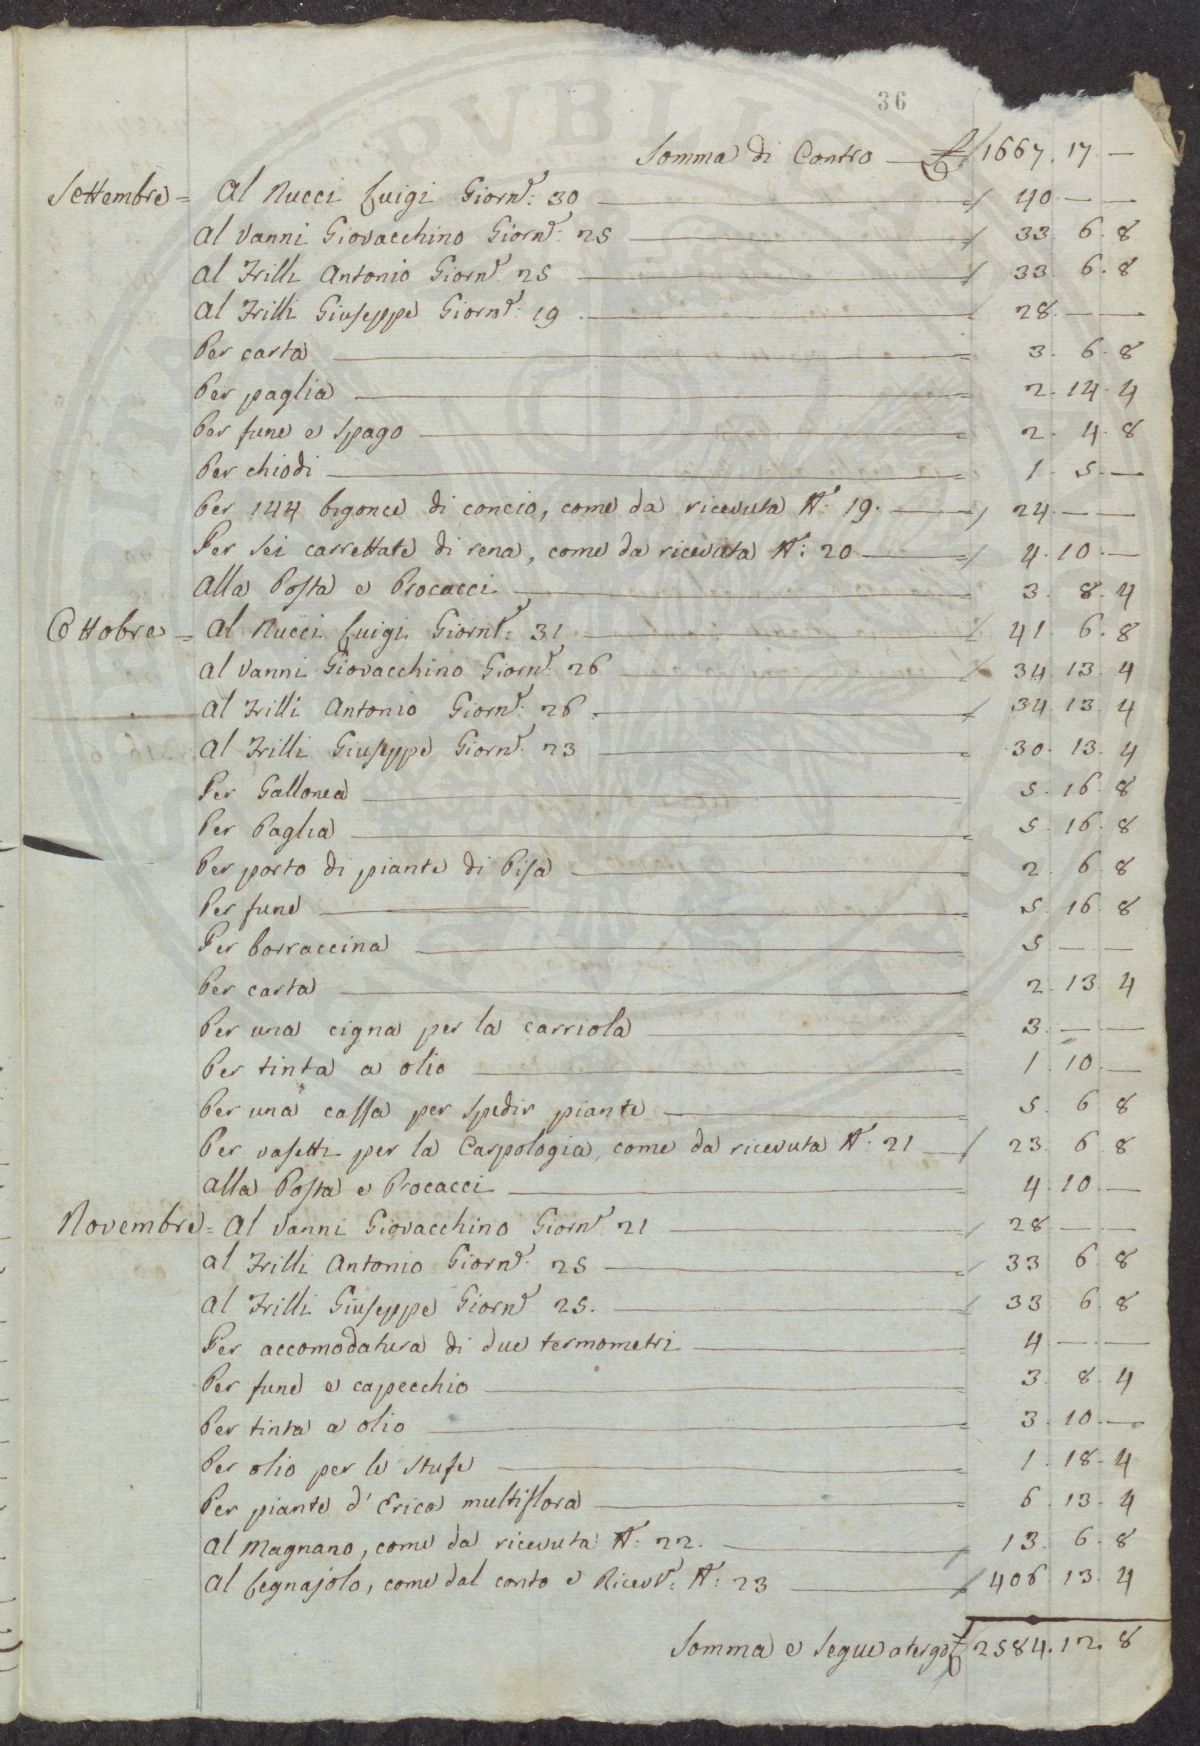 36
Somma di Contro £ 1667. 17 —
Settembre = Al Nucci Luigi Giorn.e: 30 — 40 — —
Al Vanni Giovacchino Giorn.e: 25 — 33. 6. 8
Al Frilli Antonio Giorn.e 25 — 33. 6. 8
Al Frilli Giuseppe Giorn.e: 19 — 28. — —
Per carta — 3. 6. 8
Per paglia — 2. 14. 4
Per fune e spago — 2. 4. 8
Per chiodi — 1. 5. —
Per 144 bigonce di concio, come da ricevuta N.o: 19. — 24 — —
Per sei carrettate di rena, come da ricevuta N.o: 20 — 4. 10. —
Alla Posta e Procacci — 3. 8. 4
Ottobre = Al Nucci Luigi Giorn.e: 31 — 41. 6. 8
Al Vanni Giovacchino Giorn.e: 26 — 34. 13. 4
Al Frilli Antonio Giorn.e: 26. — 34. 13. 4
Al Frilli Giuseppe Giorn.e: 23 — 30. 13. 4
Per Gallonea — 5. 16. 8
Per Paglia — 5. 16. 8
Per porto di piante di Pisa — 2. 6. 8
Per fune — 5. 16. 8
Per borraccina — 5 — —
Per carta — 2. 13. 4
Per una cigna per la carriola — 3. — —
Per tinta a olio — 1. 10. —
Per una cassa per spedir piante — 5. 6. 8
Per vasetti per la Carpologia, come da ricevuta N.o: 21 — 23. 6. 8
Alla Posta e Procacci — 4. 10. —
Novembre = Al Vanni Giovacchino Giorn.e 21 — 28 — —
Al Frilli Antonio Giorn.e: 25 — 33. 6. 8
Al Frilli Giuseppe Giorn.e 25. — 33. 6. 8
Per accomodatura di due termometri — 4 — —
Per fune e capecchio — 3. 8. 4
Per tinta a olio — 3. 10. —
Per olio per le stufe — 1. 18. 4
Per piante d' Erica multiflora — 6. 13. 4
Al Magnano, come da ricevuta N.o: 22. — 13. 6. 8
Al Legnajolo, come dal conto e Ricev.a: N.o: 23 — 406. 13. 4
Somma e segue a tergo £ 2584. 12. 8